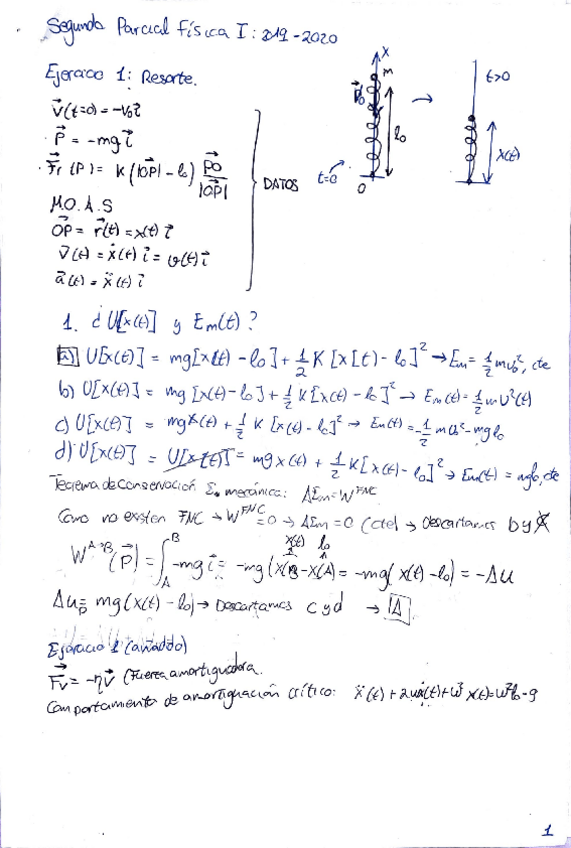 Segundo Parcial Física I: 2019-2020
Ejercicio 1: Resorte.
x
m
P₀
l₀
t=0
O
→
t>0
x(t)
v⃗(t=0) = -v₀ i⃗
· P⃗ = -mg i⃗
· F⃗r (P) = K (|OP⃗| - l₀) PO⃗/|OP⃗|
DATOS
M.O.A.S
OP⃗ = r⃗(t) = x(t) i⃗
v⃗(t) = ẋ(t) i⃗ = v(t) i⃗
a⃗(t) = ẍ(t) i⃗
1. ¿U[x(t)] y Em(t)?
a) U[x(t)] = mg[x(t) - l₀] + 1/2 K [x(t) - l₀]² → Em = 1/2 mv₀², cte
b) U[x(t)] = mg [x(t) - l₀] + 1/2 K [x(t) - l₀]² → Em(t) = 1/2 m v²(t)
c) U[x(t)] = mgx(t) + 1/2 K [x(t) - l₀]² → Em(t) = -1/2 m v₀² - mg l₀
d) U[x(t)] = U[x(t)] = mg x(t) + 1/2 K [x(t) - l₀]² → Em(t) = mgl₀, cte
Teorema de Conservación E. mecánica: ΔEm = W^FNC
Como no existen FNC → W^FNC = 0 → ΔEm = 0 (cte) → Descartamos b y
x(t) l₀
W^A→B (P⃗) = ∫_A^B -mg i⃗ = -mg (x(B) - x(A)) = -mg( x(t) - l₀) = -Δu
Δu_p = mg(x(t) - l₀) → Descartamos c y d → A
Ejercicio 1 (añadido)
F⃗v = -ηv⃗ (Fuerza amortiguadora.
Comportamiento de amortiguación crítico: ẍ(t) + 2ωẋ(t) + ω² x(t) = ω²l₀ - g
1